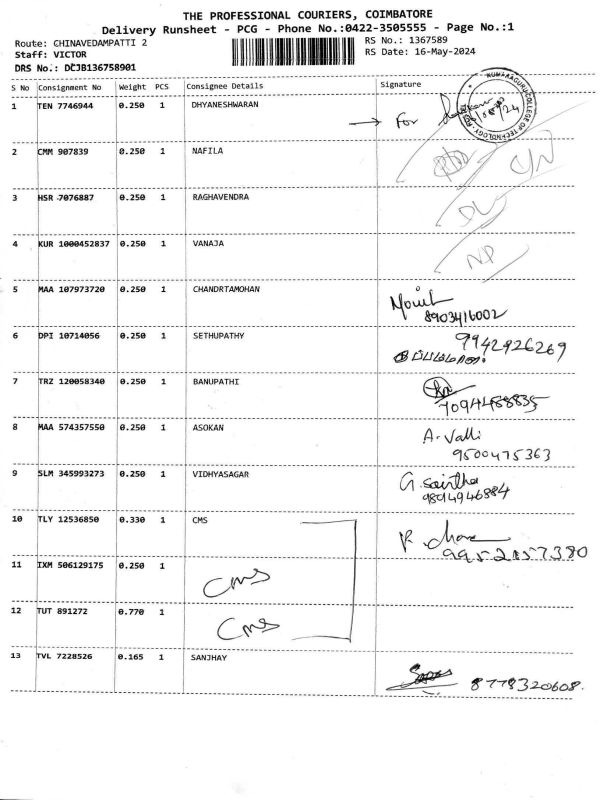 THE PROFESSIONAL COURIERS, COIMBATORE
Delivery Runsheet - PCG - Phone No.:0422-3505555 - Page No.:1
Route: CHINAVEDAMPATTI 2 RS No.: 1367589
Staff: VICTOR RS Date: 16-May-2024
DRS No.: DCJB136758901
S No Consignment No Weight PCS Consignee Details Signature
KUMARAGURU COLLEGE OF TECHNOLOGY
1 TEN 7746944 0.250 1 DHYANESHWARAN → For
2 CMM 907839 0.250 1 NAFILA
3 HSR 7076887 0.250 1 RAGHAVENDRA DL
4 KUR 1000452837 0.250 1 VANAJA NP
5 MAA 107973720 0.250 1 CHANDRTAMOHAN
8903416002
6 DPI 10714056 0.250 1 SETHUPATHY 9942926269
7 TRZ 120058340 0.250 1 BANUPATHI
7094488835
8 MAA 574357550 0.250 1 ASOKAN A. Valli
9500475363
9 SLM 345993273 0.250 1 VIDHYASAGAR G. Savitha
9894946884
10 TLY 12536850 0.330 1 CMS
9952157380
11 IXM 506129175 0.250 1 CMS
12 TUT 891272 0.770 1 CMS
13 TVL 7228526 0.165 1 SANJHAY 8778320608.